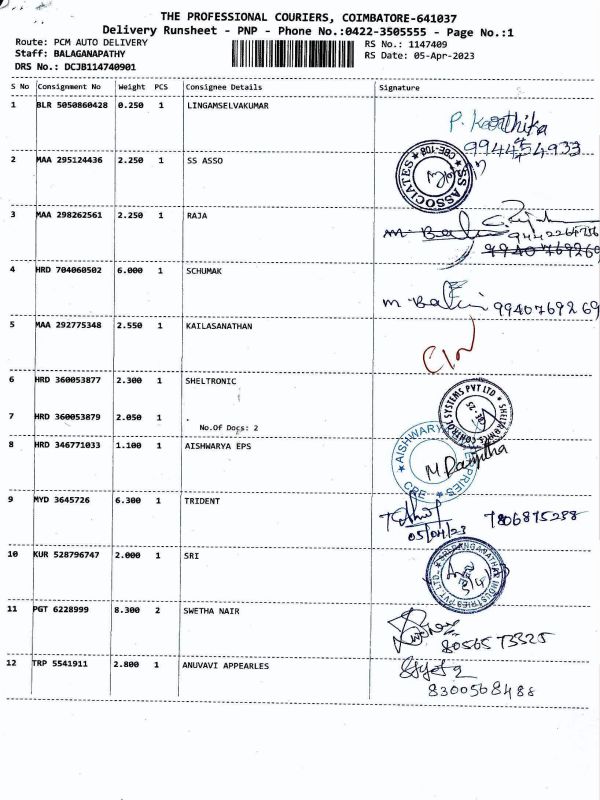 THE PROFESSIONAL COURIERS, COIMBATORE-641037
Delivery Runsheet - PNP - Phone No.:0422-3505555 - Page No.:1
Route: PCM AUTO DELIVERY
RS No.: 1147409
Staff: BALAGANAPATHY
RS Date: 05-Apr-2023
DRS No.: DCJB114740901
S No Consignment No Weight PCS Consignee Details Signature
1 BLR 5050860428 0.250 1 LINGAMSELVAKUMAR
P. Karthika
2 MAA 295124436 2.250 1 SS ASSO
SS ASSOCIATES
3 MAA 298262561 2.250 1 RAJA
9940769269
4 HRD 704060502 6.000 1 SCHUMAK
9940769269
5 MAA 292775348 2.550 1 KAILASANATHAN
6 HRD 360053877 2.300 1 SHELTRONIC
7 HRD 360053879 2.050 1
No.Of Docs: 2
8 HRD 346771033 1.100 1 AISHWARYA EPS
9 MYD 3645726 6.300 1 TRIDENT
7806875288
05/04/23
10 KUR 528796747 2.000 1 SRI
11 PGT 6228999 8.300 2 SWETHA NAIR
8056573325
12 TRP 5541911 2.800 1 ANUVAVI APPEARLES
8300568488